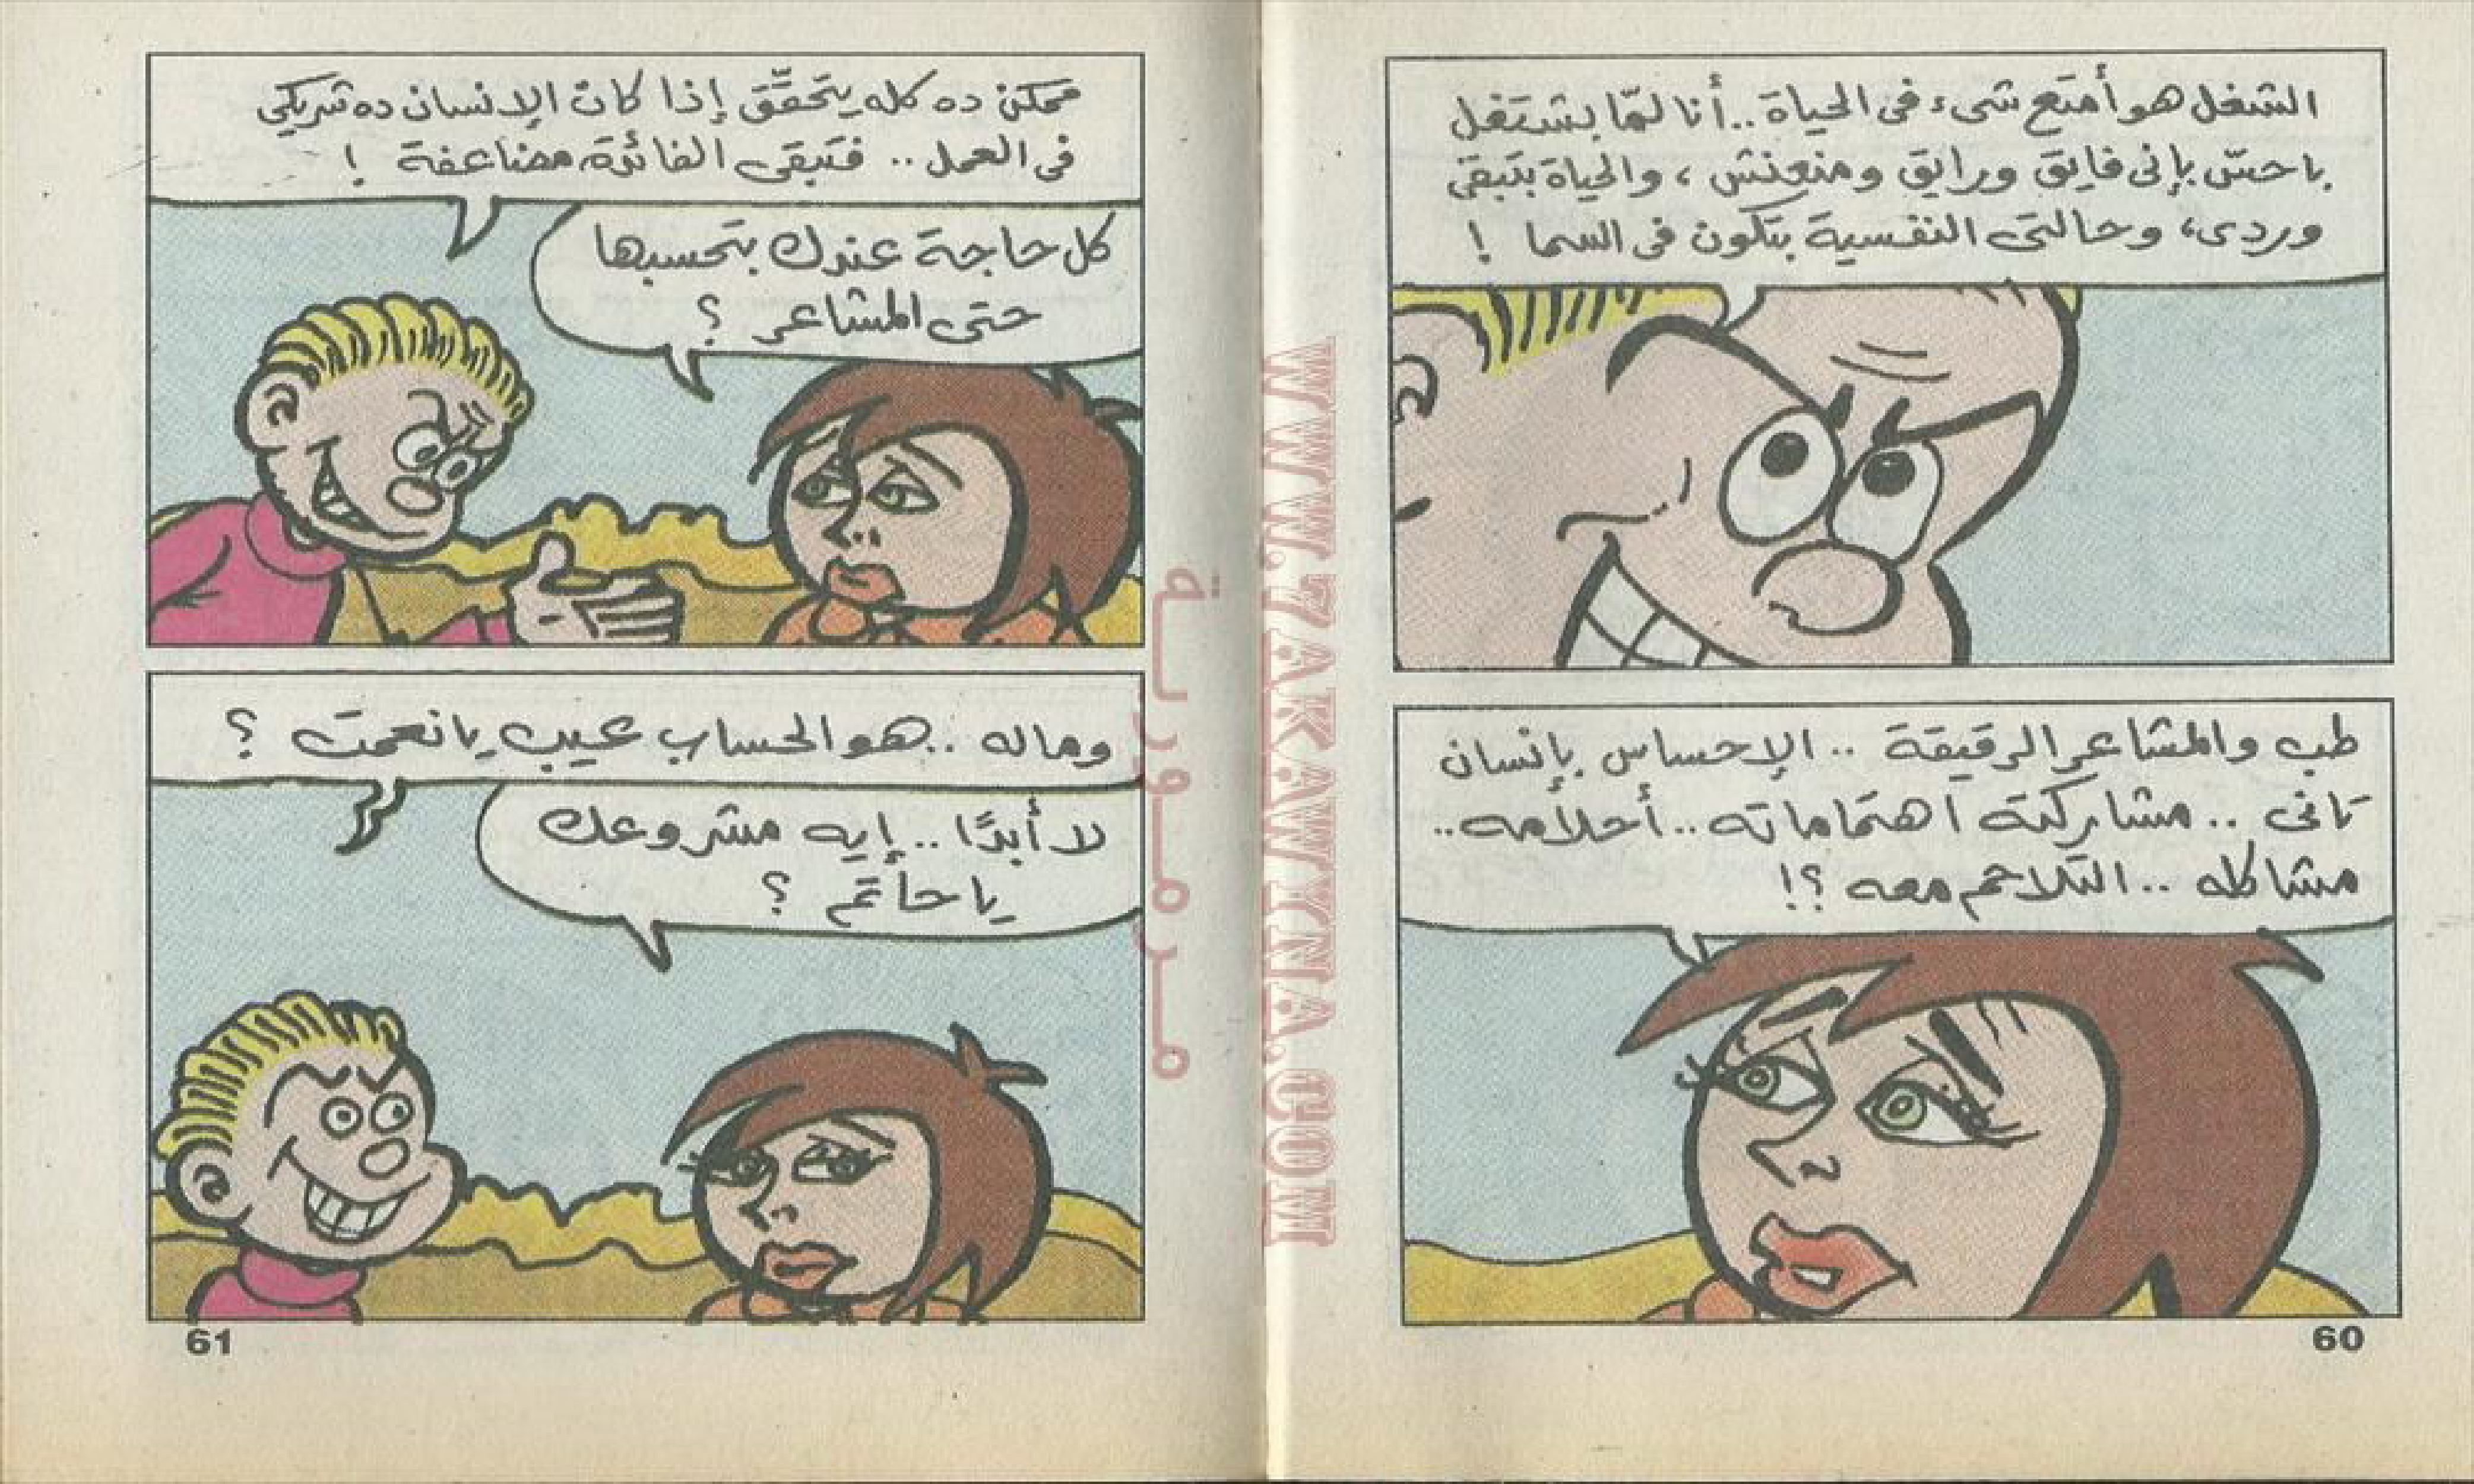 الشغل هو أمتع شىء فى الحياة.. أنا لمّا بشتغل
باحسّ بإنى فايق ورايق ومنعنش، والحياة بتبقى
وردى، وحالتى النفسية بتكون فى السما !
طب والمشاعر الرقيقة .. الإحساس بإنسان
تانى .. مشاركته اهتماماته.. أحلامه..
مشاكله .. التلاحم معه ؟!
60
ممكن ده كله يتحقّق إذا كان الإنسان ده شريكى
فى العمل .. فتبقى الفائدة مضاعفة !
كل حاجة عندك بتحسبها
حتى المشاعر ؟
وماله .. هو الحساب عيب يا نعمت ؟
لا أبدًا .. إيه مشروعك
يا حاتم ؟
61
WWW.7AKAWYNA.COM
مرمورية